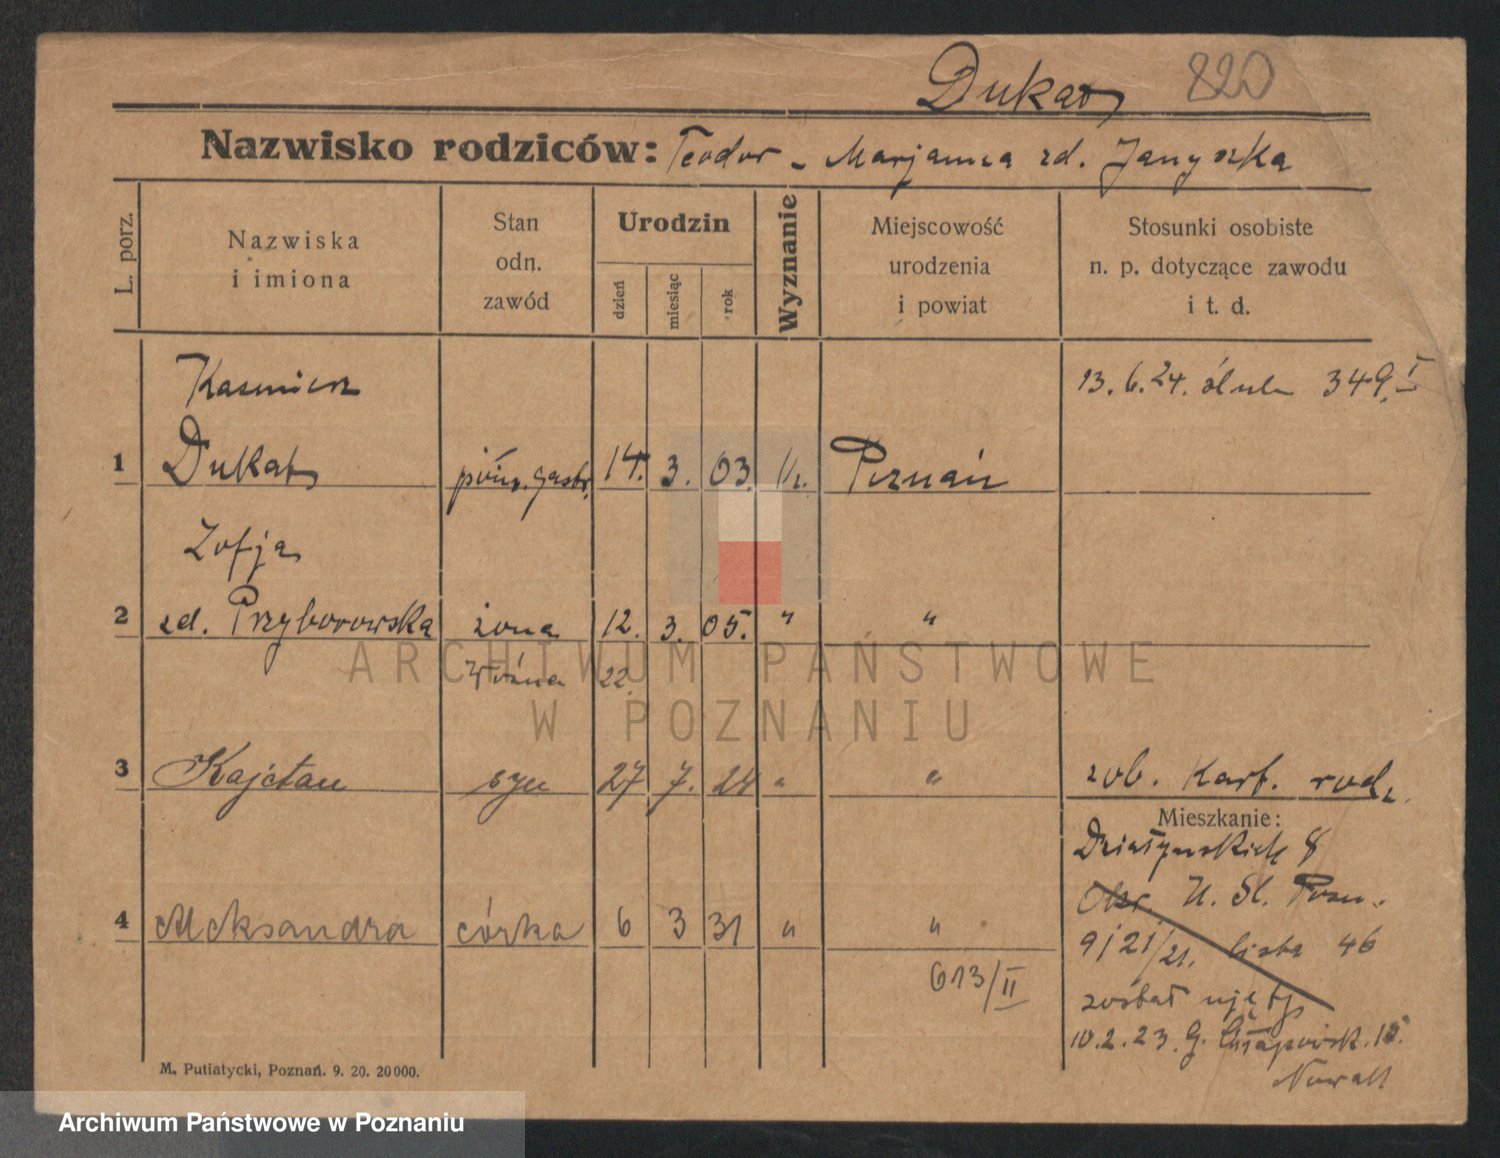 Dukat 820
Nazwisko rodziców: Teodor - Marjanna zd. Janyszka
L. porz.
Nazwiska
i imiona
Stan
odn.
zawód
Urodzin
dzień
miesiąc
rok
Wyznanie
Miejscowość
urodzenia
i powiat
Stosunki osobiste
n. p. dotyczące zawodu
i t. d.
Kazmierz 13. 6. 24. ślub 349. I
1 Dukat gastr. 14. 3. 03. Poznań
Zofja
2 zd. Przyborowska żona 12. 3. 05. " "
Woźna 22.
3 Kajetan syn 27 7. 24 " " zob. Kart. rodz.
Mieszkanie:
Działyńskich 8
4 Aleksandra córka 6 3 31 " "
U. St. Pozn.
9/21/21. lista 46
613/II
został ujęty
10. 2. 23. G. Chłapowsk. 15.
M. Putiatycki, Poznań. 9. 20. 20000.
ARCHIWUM PAŃSTWOWE
W POZNANIU
Archiwum Państwowe w Poznaniu